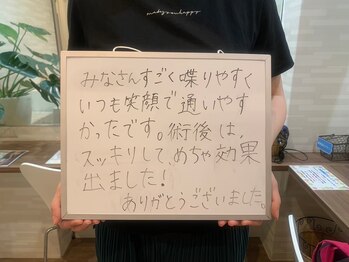 みなさんすごく喋りやすく
いつも笑顔で通いやす
かったです。術後は、
スッキリして、めちゃ効果
出ました!
ありがとうございました。